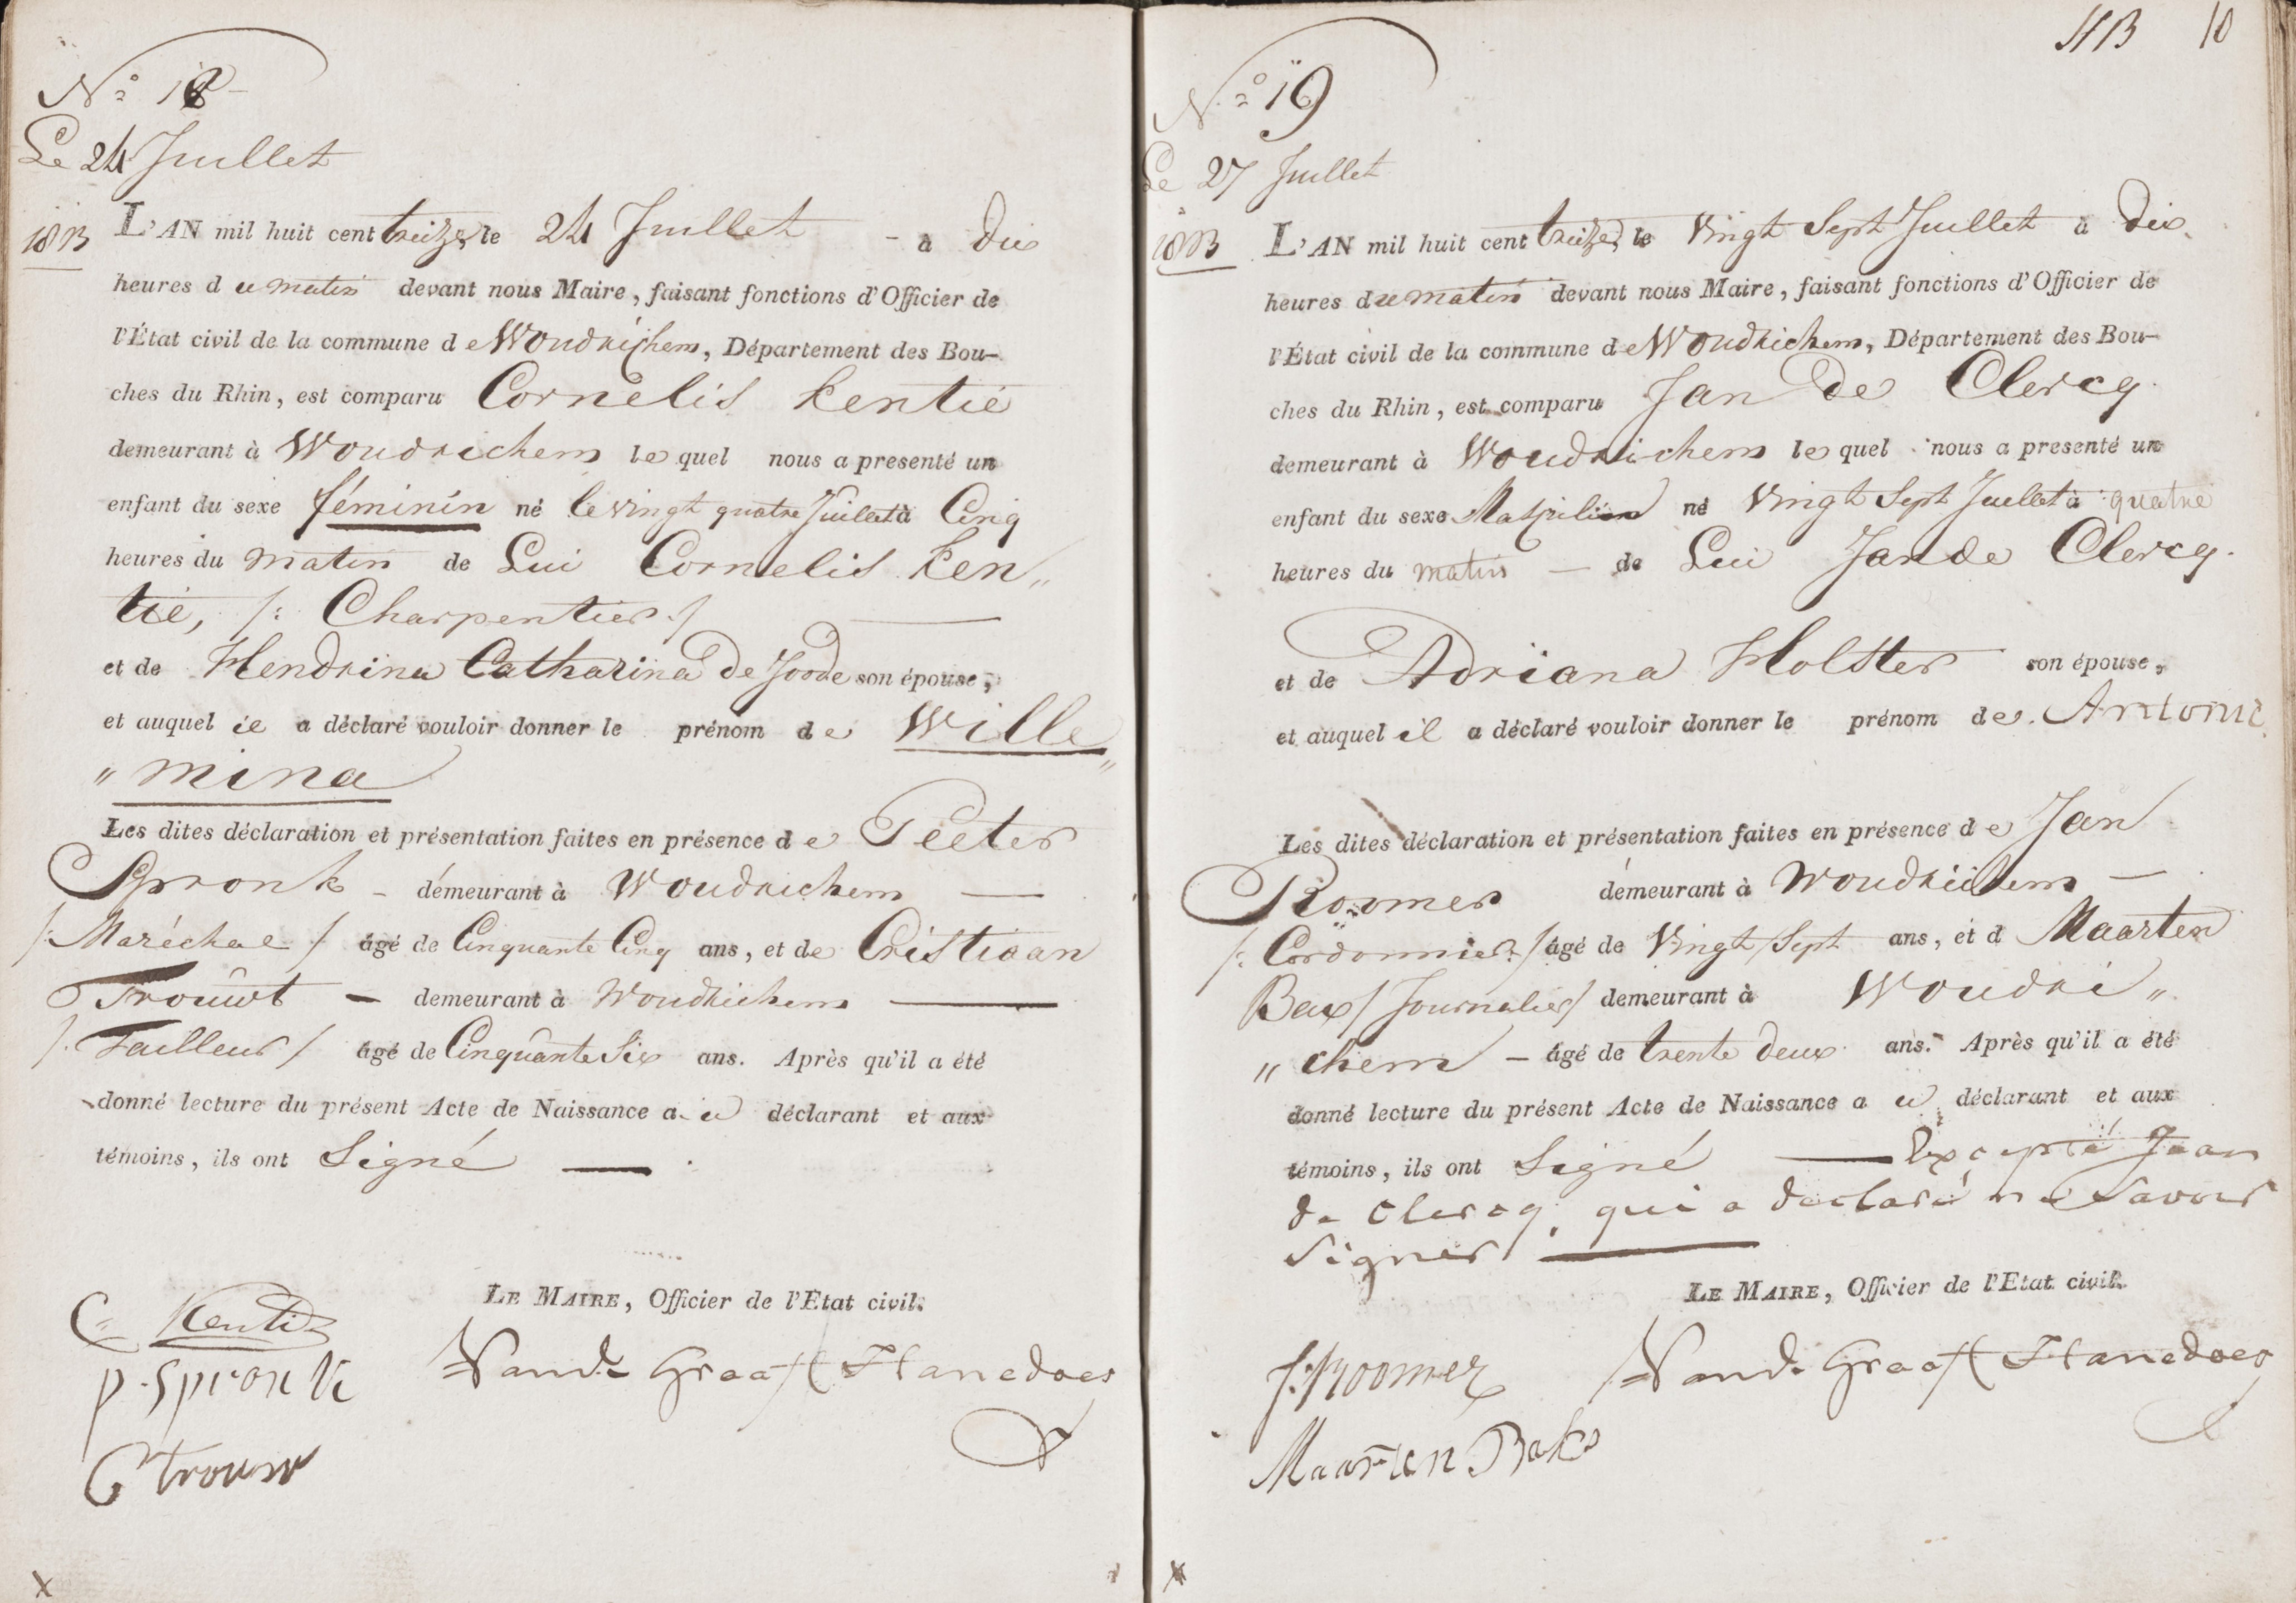 Nº 18
Le 24 Juillet
1813 L'AN mil huit cent treize, le 24 Juillet - à dix
heures du matin devant nous Maire, faisant fonctions d'Officier de
l'État civil de la commune de Woudrichem, Département des Bou-
ches du Rhin, est comparu Cornelis Kentie
demeurant à Woudrichem lequel nous a presenté un
enfant du sexe féminin né le vingt quatre Juillet à Cinq
heures du matin de Lui Cornelis Ken„
tie, /: Charpentier :/
et de Hendrina Catharina De Joode son épouse,
et auquel il a déclaré vouloir donner le prénom de Wille„
„mina
Les dites déclaration et présentation faites en présence de Peeter
Spronk - démeurant à Woudrichem —
/: Maréchal / âgé de Cinquante Cinq ans, et de Cristiaan
Trouwt - demeurant à Woudrichem —
/: Tailleur / âgé de Cinquante Six ans. Après qu'il a été
donné lecture du présent Acte de Naissance au déclarant et aux
témoins, ils ont Signé —
LE MAIRE, Officier de l'Etat civil.
C: Kentie
Vand: Graaff Hanedoes
p. Spronk
C trouw
x
HB 10
Nº 19
Le 27 Juillet
1813 L'AN mil huit cent treize, le Vingt Sept Juillet à dix
heures du matin devant nous Maire, faisant fonctions d'Officier de
l'État civil de la commune de Woudrichem, Département des Bou-
ches du Rhin, est comparu Jan De Clercq
demeurant à Woudrichem lequel nous a presenté un
enfant du sexe né Vingt Sept Juillet à quatre
heures du matin — de Lui Jan de Clercq.
et de Adriana Holster son épouse,
et auquel il a déclaré vouloir donner le prénom de Antonie
Les dites déclaration et présentation faites en présence de Jan
Roomer démeurant à Woudrichem —
/: Cordonnier :/ âgé de Vingt Sept ans, et d Maarten
Bax / Journalier / demeurant à Woudri„
„chem - âgé de trente deux ans. Après qu'il a été
donné lecture du présent Acte de Naissance au déclarant et aux
témoins, ils ont Signé — Excepté Jan
de Clercq, qui a declaré ne Savoir
Signer —
LE MAIRE, Officier de l'Etat civil.
J: Roomer Vand: Graaff Hanedoes
Maarten Baks
x